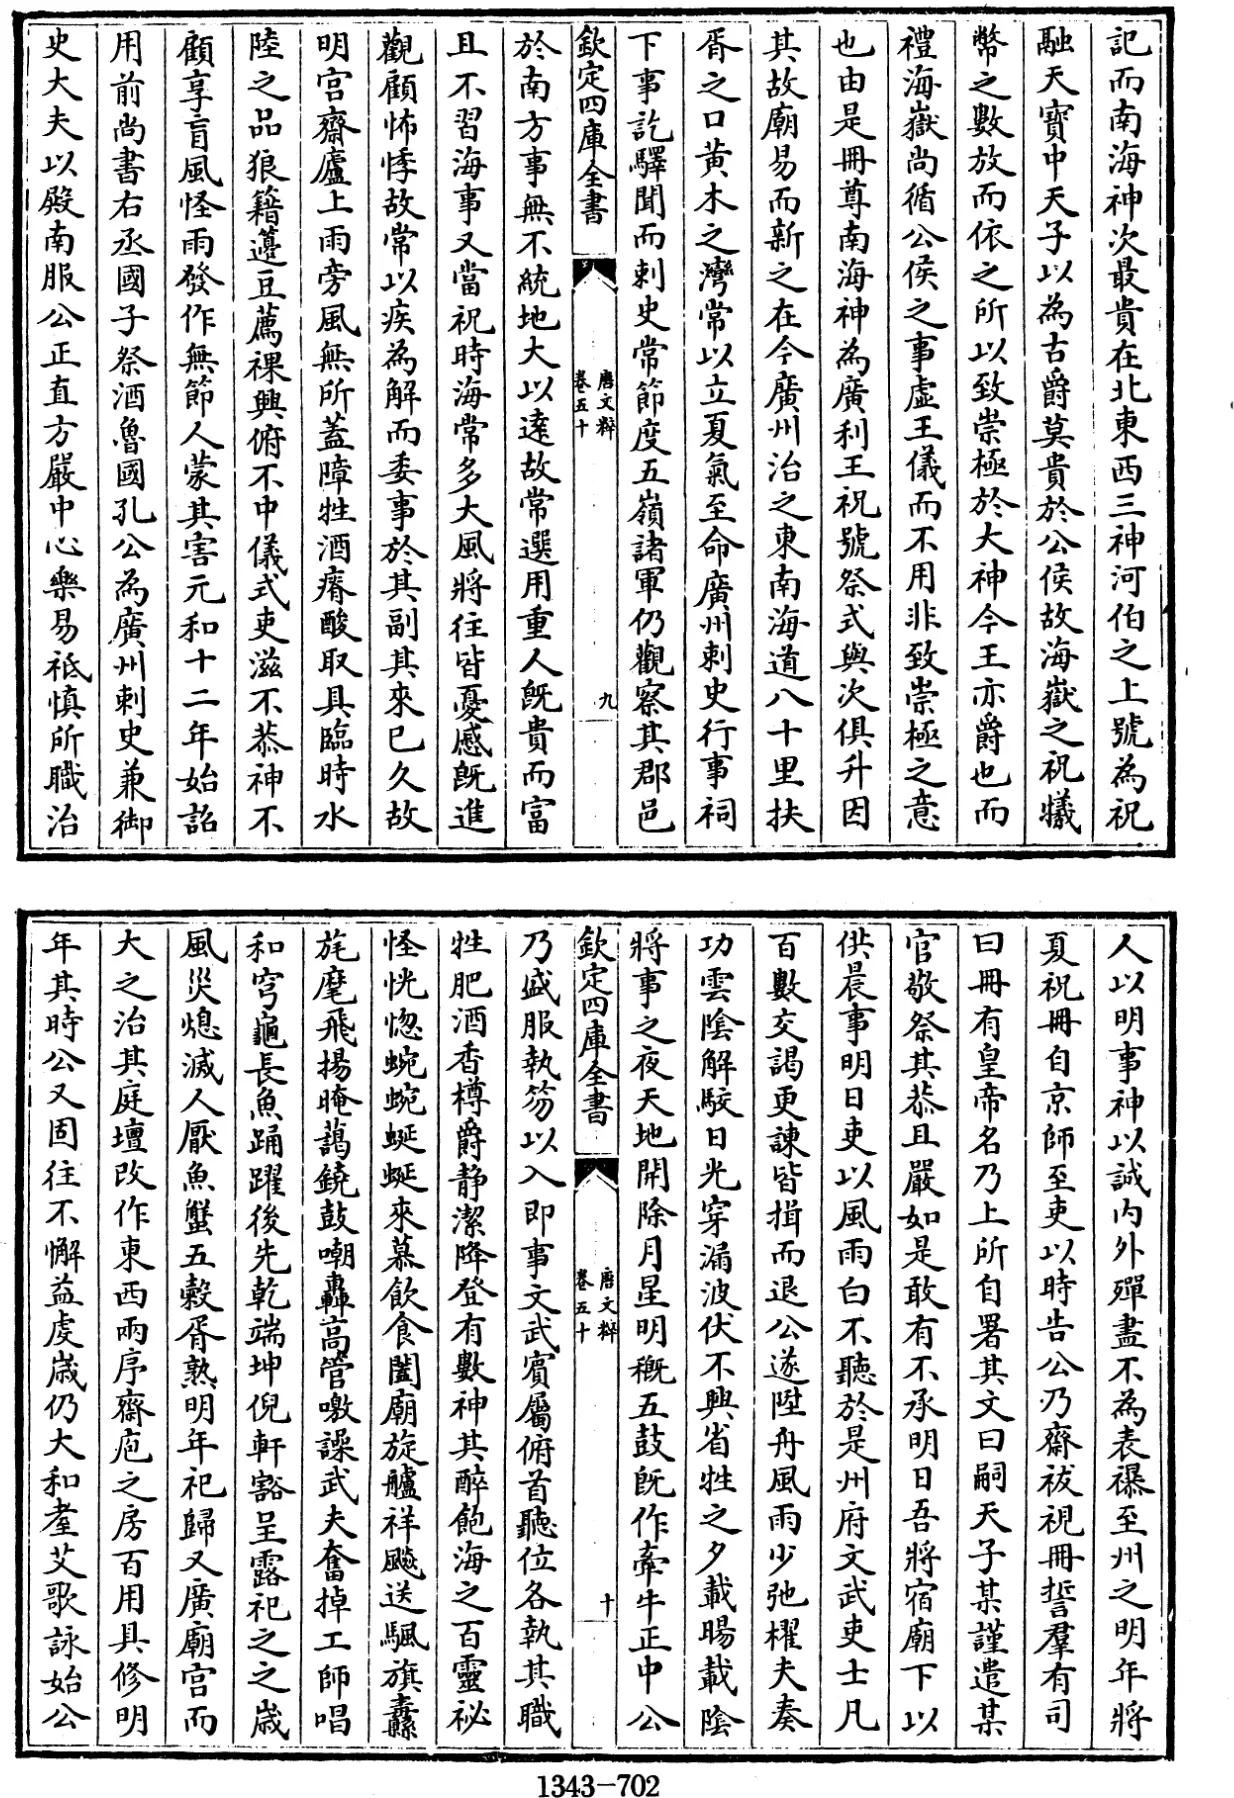 記而南海神次最貴在北東西三神河伯之上號為祝
融天寳中天子以為古爵莫貴於公侯故海嶽之祝犧
幣之數放而依之所以致崇極於大神今王亦爵也而
禮海嶽尚循公侯之事虚王儀而不用非致崇極之意
也由是冊尊南海神為廣利王祝號祭式與次俱升因
其故廟易而新之在今廣州治之東南海道八十里扶
胥之口黄木之灣常以立夏氣至命廣州刺史行事祠
下事訖驛聞而刺史常節度五嶺諸軍仍觀察其郡邑
欽定四庫全書
唐文粹
卷五十
九
於南方事無不統地大以逺故常選用重人既貴而富
且不習海事又當祀時海常多大風將往皆憂慼既進
觀顧怖悸故常以疾為解而委事於其副其來已久故
明宫齋廬上雨旁風無所蓋障牲酒瘠酸取具臨時水
陸之品狼籍籩豆薦祼興俯不中儀式吏滋不恭神不
顧享盲風怪雨發作無節人蒙其害元和十二年始詔
用前尚書右丞國子祭酒魯國孔公為廣州刺史兼御
史大夫以殿南服公正直方嚴中心樂易祗慎所職治
人以明事神以誠内外殫盡不為表襮至州之明年將
夏祝冊自京師至吏以時告公乃齋祓視冊誓羣有司
曰冊有皇帝名乃上所自署其文曰嗣天子某謹遣某
官敬祭其恭且嚴如是敢有不承明日吾將宿廟下以
供晨事明日吏以風雨白不聽於是州府文武吏士凡
百數交謁更諫皆揖而退公遂陞舟風雨少弛櫂夫奏
功雲陰解駮日光穿漏波伏不興省牲之夕載暘載陰
將事之夜天地開除月星明穊五鼓既作牽牛正中公
欽定四庫全書
唐文粹
卷五十
十
乃盛服執笏以入即事文武賓屬俯首聽位各執其職
牲肥酒香樽爵静潔降登有數神其醉飽海之百靈祕
怪恍惚蜿蜿蜒蜒來慕飲食闔廟旋艫祥飈送颿旗纛
旄麾飛揚晻藹鐃鼓嘲轟高管噭譟武夫奮掉工師唱
和穹龜長魚踊躍後先乾端坤倪軒豁呈露祀之之歲
風災熄滅人厭魚蟹五穀胥熟明年祀歸又廣廟宫而
大之治其庭壇改作東西兩序齋庖之房百用具修明
年其時公又固往不懈益虔歲仍大和耋艾歌詠始公
1343-702